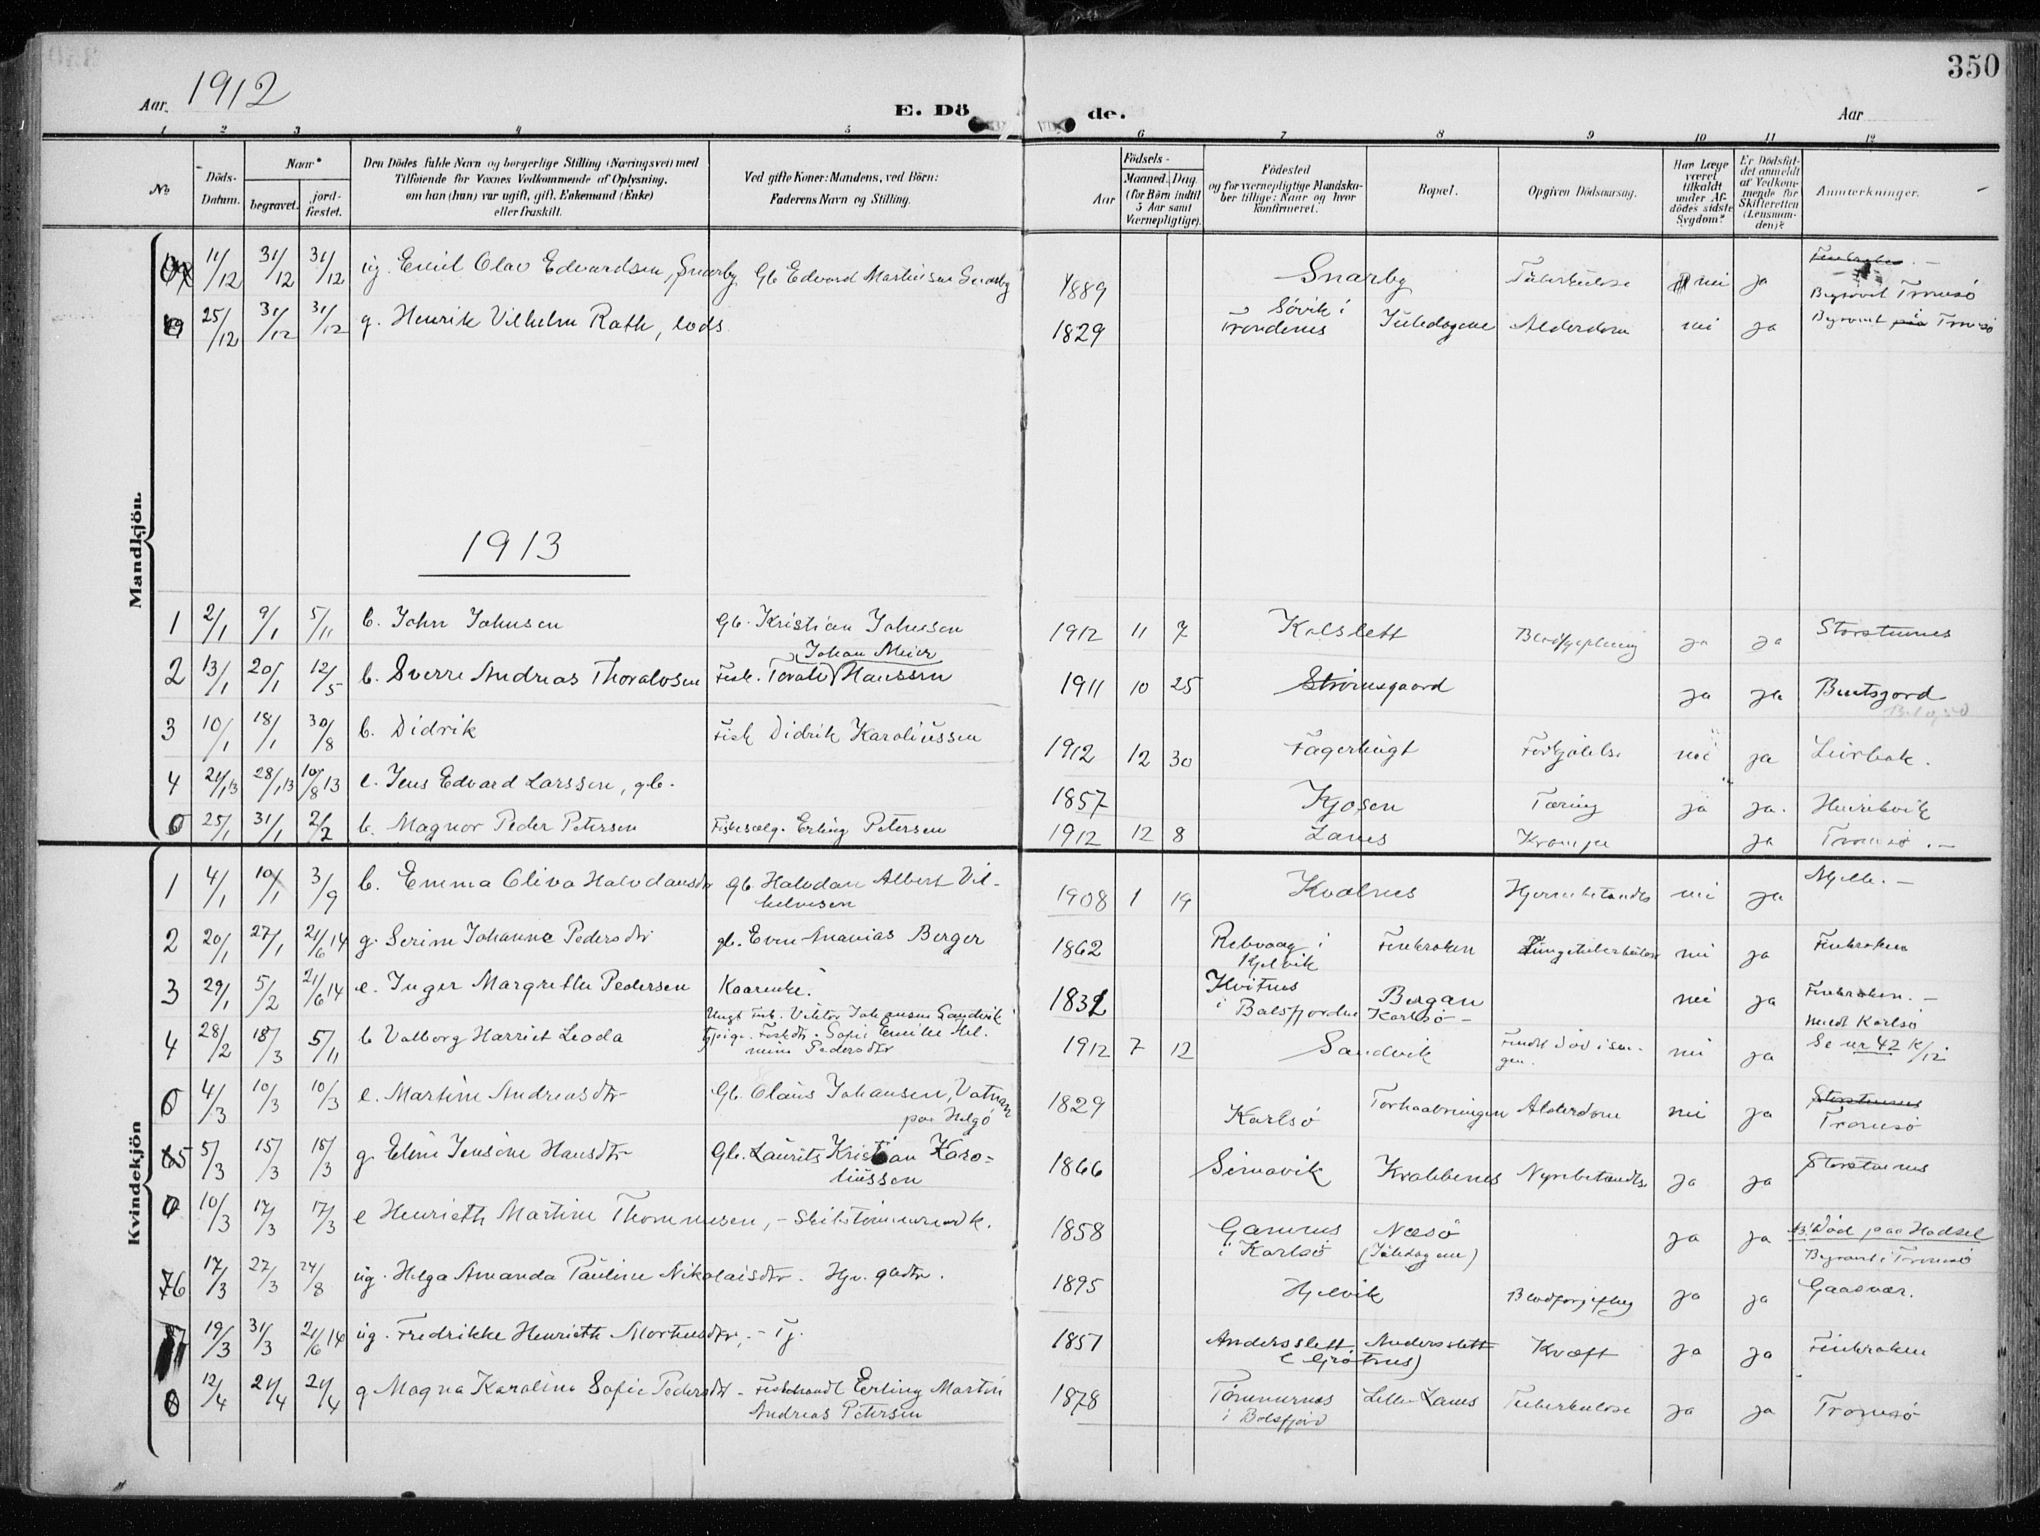 350
Aar. 1912
E. Dö de.
Aar
1 2 3 4 5 6 7 8 9 10 11 12
No
Döds-Datum.
Naar* begravet. jordfæstet.
Den Dödes fulde Navn og borgerlige Stilling (Næringsvei) med
Tilföiende for Voxnes Vedkommende af Oplysning,
om han (hun) var ugift, gift, Enkemand (Enke)
eller fraskilt.
Ved gifte Koner: Mandens, ved Börn:
Faderens Navn og Stilling.
Födsels-
Aar
Maaned. Dag.
(for Börn indtil 5 Aar samt Værnepligtige).
Födested
og for værnepligtige Mandskaber tillige: Naar og hvor konfirmeret.
Bopæl.
Opgiven Dödsaarsag.
Har Læge været tilkaldt under Afdödes sidste Sygdom?
Er Dödsfaldet anmeldt af Vedkommende for Skifteretten (Lensmanden)?
Anmerkninger.
Mandkjön.
11/12 31/12 31/12 ug. Emil Olav Edvardsen, Snarby Gb Edvard Martinsen Snarby 1889 Snarby Tuberkulose nei ja Begravet Tromsö
25/12 31/12 31/12 g. Henrik Vilhelm Rath, lods 1829 Sövik i Trondenes Juledagene Alderdom nei ja Begravet paa Tromsö
1913
1 2/1 9/1 5/11 b. John Johnsen Gb. Kristian Johnsen 1912 11 7 Kalslett Blodforgiftning ja ja Storstennes
2 13/1 20/1 12/5 b. Sverre Andreas Thoralvsen Fisk. Toralv Johan Meier Hanssen 1911 10 25 Strömsgaard ja ja Buntsjord
3 10/1 18/1 30/8 b. Didrik Fisk Didrik Karoliussen 1912 12 30 Fagerhugt Forkjölelse nei ja Leirbak.
4 21/1 13 28/1 13 10/8 13 e. Jens Edvard Larssen, gb. 1857 Kjosen Tæring ja ja. Henrikvik
5 25/1 31/1 2/2 b. Magnor Peder Petersen Fiskesælg. Erling Petersen 1912 12 8 Lanes Krampe ja Tromsö
Kvindekjön
1 4/1 10/1 3/9 b. Emma Oliva Halvdansdtr gb. Halvdan Albert Vilhelmsen 1908 1 19 Kvalnes Hjernebetændelse nei ja Mjelle.
2 20/1 27/1 21/6 14 g. Serine Johanne Pedersdtr gb. Even Ananias Berger 1862 Rebvaag i Kjelvik Finkroken Lungetuberkulose nei ja Finkroken
3 29/1 5/2 21/6 14 e. Inger Margrethe Pedersen Kaarenke. 1832 Hvitnes i Balsfjorden Bergan Karlsö nei ja Finkroken.
4 28/2 18/3 5/11 b Valborg Harriet Leoda Ungk Fisk. Viktor Johansen Sandvik
Tj.pige. Fiskdtr. Sofie Emilie Helmine Pedersdtr 1912 7 12 Sandvik Fundet död i sengen. nei ja meldt Karlsö Se nr 42 K/12
4/3 10/3 10/3 e. Martine Andreasdtr Gb. Olaus Johansen, Vatnan paa Helgö 1829 Karlsö Torhaabningen Alderdom nei ja Storstennes Tromsö
5 5/3 15/3 15/3 g. Eline Jensine Hansdtr Gb. Laurits Kristian Karoliussen 1866 Simavik Krabbenes Nyrebetændelse ja ja Storstennes
10/3 17/3 17/3 e Henrieth Martine Thommesen, - Skibstömmermdk. 1858 Gamnes i Karlsö Næsö (Juledagene) ja ja NB! Död paa Hadsel Begravet i Tromsö
6 17/3 27/3 24/8 ug. Helga Amanda Pauline Nikolaisdtr. Hjv. gbdtr. 1895 Hjelvik Blodforgiftng ja ja Gaasvær.
7 19/3 31/3 21/6 14 ug. Fredrikke Henrieth Mortensdtr, - Tj. 1851 Andersslett (Grötnes) Andersslett Kræft ja ja Finkroken
8 12/4 21/4 21/4 g Magna Karoline Sofie Pedersdt - Fiskehandl Erling Martin Andreas Petersen 1878 Tömmernes i Balsfjord Lille-Lanes Tuberkulose ja ja Tromsö